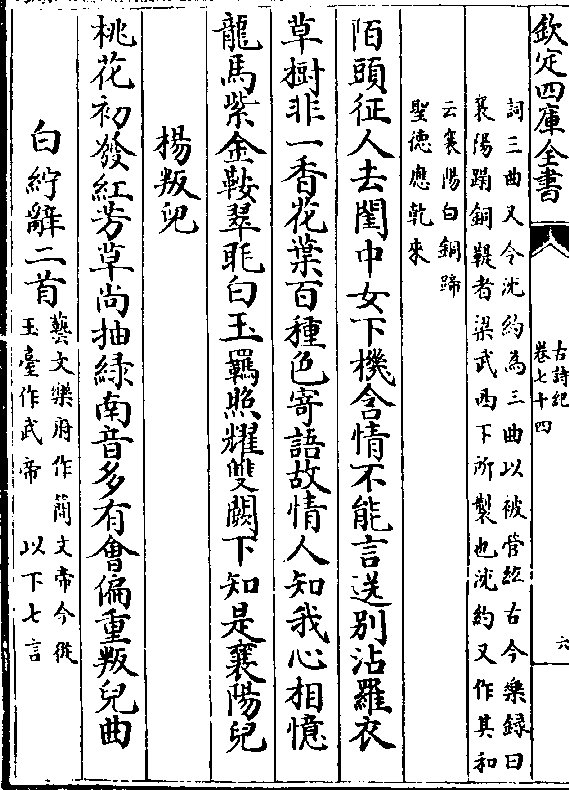 欽定四庫全書
古詩紀
卷七十四
六
詞三曲又令沈約為三曲以被管絃古今樂録曰
襄陽蹋銅鞮者梁武西下所製也沈約又作其和
云襄陽白銅蹄
聖德應乾來
陌頭征人去閨中女下機含情不能言送别沾羅衣
草樹非一香花葉百種色寄語故情人知我心相憶
龍馬紫金鞍翠眊白玉羈照耀雙闕下知是襄陽兒
楊叛兒
桃花初發紅芳草尚抽綠南音多有會偏重叛兒曲
白紵辭二首
藝文樂府作簡文帝今從
玉臺作武帝　以下七言